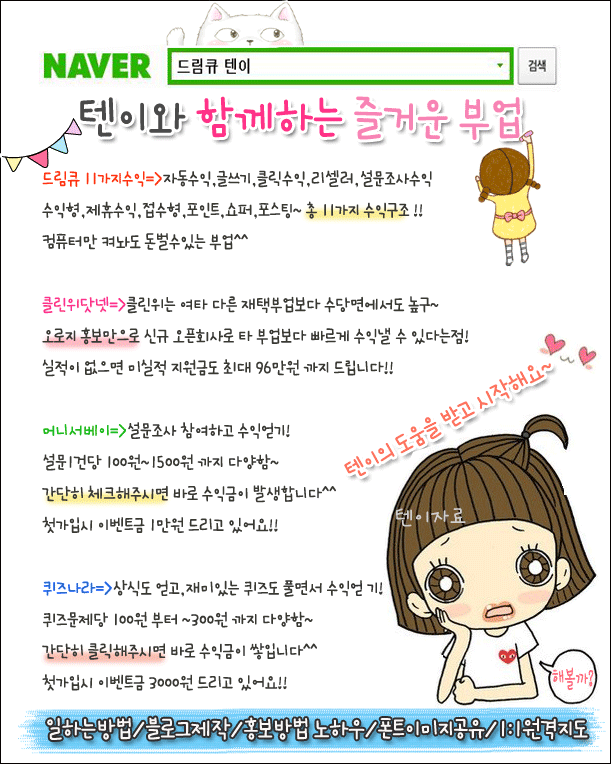 NAVER 드림큐 텐이 검색
텐이와 함께하는 즐거운 부업
드림큐 11가지수익=>자동수익,글쓰기,클릭수익,리셀러,설문조사수익
수익형,제휴수익,접수형,포인트,쇼퍼,포스팅~ 총 11가지 수익구조 !!
컴퓨터만 켜놔도 돈벌수있는 부업^^
클린위닷넷=>클린위는 여타 다른 재택부업보다 수당면에서도 높구~
오로지 홍보만으로 신규 오픈회사로 타 부업보다 빠르게 수익낼 수 있다는점!
실적이 없으면 미실적 지원금도 최대 96만원 까지 드립니다!!
텐이의 도움을 받고 시작해요~
머니서베이=>설문조사 참여하고 수익얻기!
설문1건당 100원~1500원 까지 다양함~
간단히 체크해주시면 바로 수익금이 발생합니다^^
첫가입시 이벤트금 1만원 드리고 있어요!!
텐이자료
퀴즈나라=>상식도 얻고,재미있는 퀴즈도 풀면서 수익얻기!
퀴즈문제당 100원 부터 ~300원 까지 다양함~
간단히 클릭해주시면 바로 수익금이 쌓입니다^^
첫가입시 이벤트금 3000원 드리고 있어요!!
해볼까?
일하는방법/블로그제작/홍보방법 노하우/폰트이미지공유/1:1원격지도